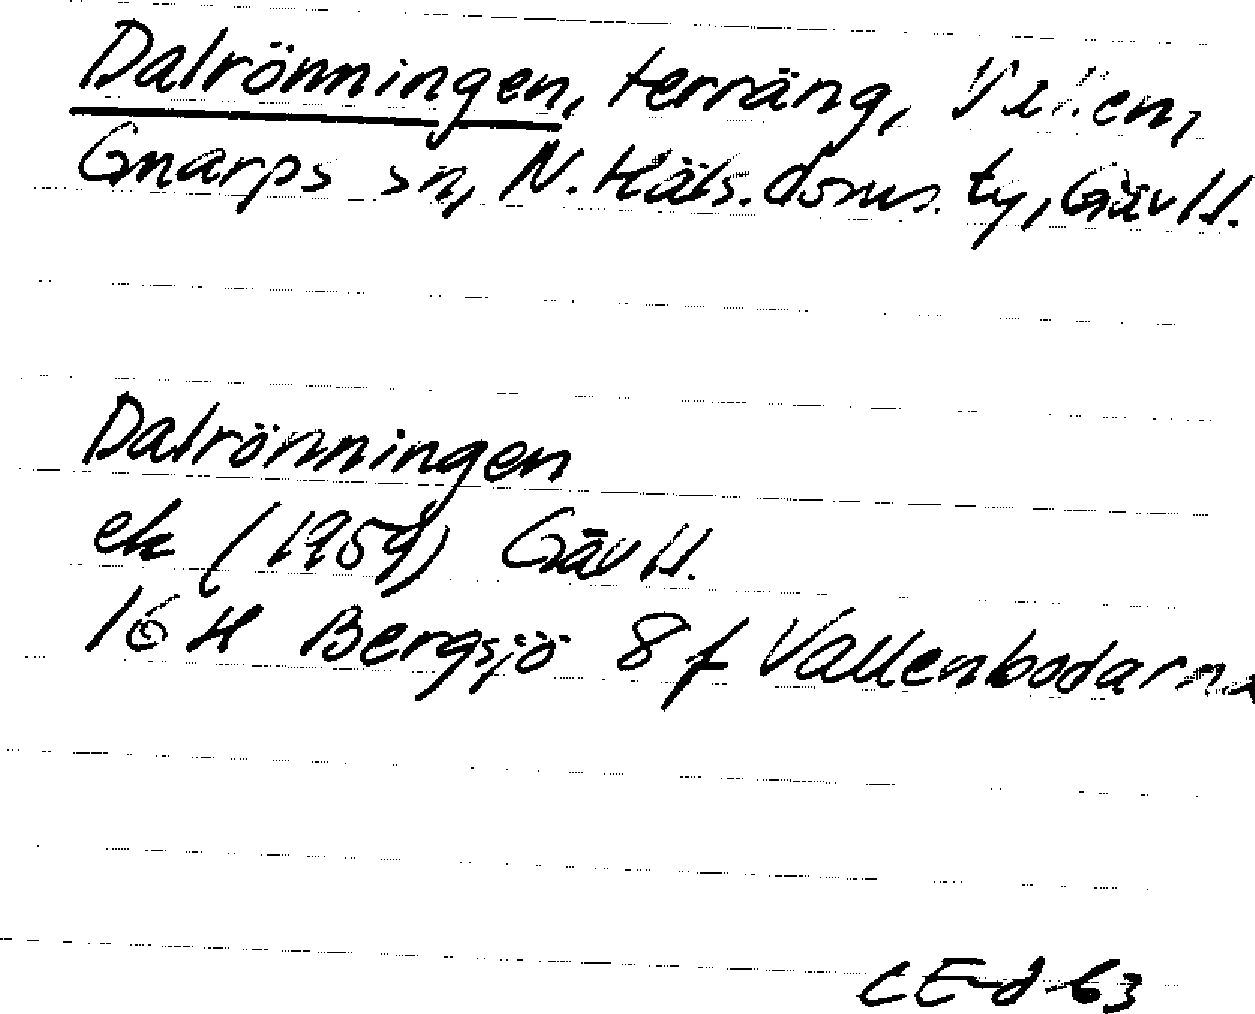 Dalrönningen, terräng,
Gnarps sn, N. Häls. doms. ty, Gävl l.
Dalrönningen
ek (1959) Gävl l.
16 H Bergsjö 8 f Vallenbodarna
CE-d 63